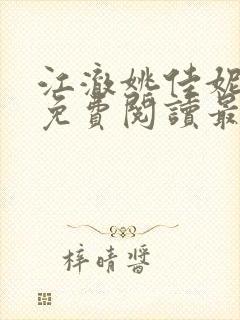 江澈姚佳妮
免費閱讀最
梓晴醬